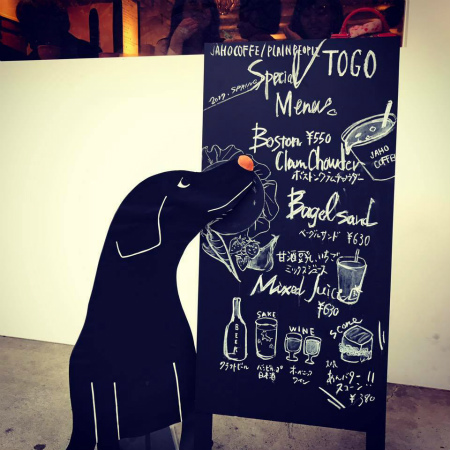 JAHO COFFEE / PLAIN PEOPLE
TOGO
Special
2019. SPRING
Menus
Boston ¥550
Clam Chowder
ボストンクラムチャウダー
JAHO
COFFEE
Bagel sand
ベーグルサンド ¥630
甘酒豆乳いちご
ミックスジュース
Mixed Juice
¥630
BEER
SAKE
WINE
Scone
クラフトビール
日本酒
オーガニック
ワイン
あんバター
スコーン!!
¥380